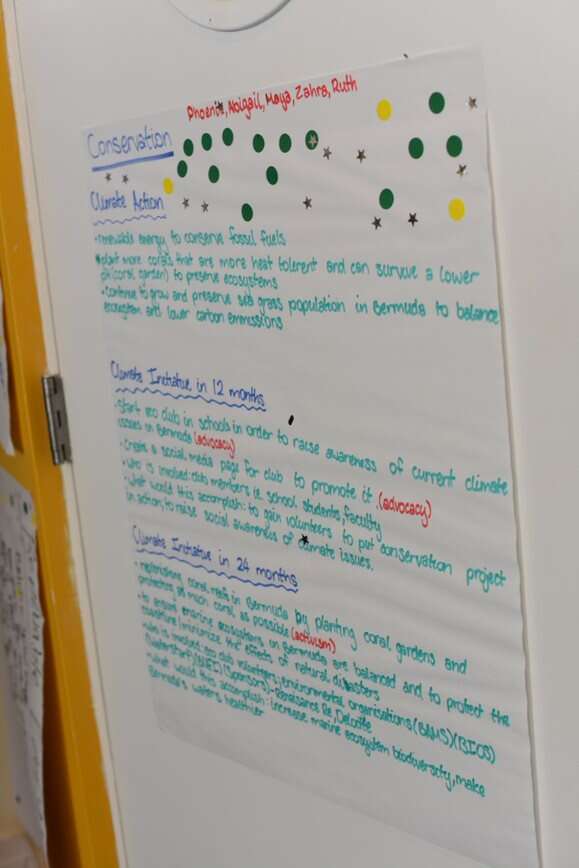 Phoenix, Abigail, Maya, Zahra, Ruth
Conservation
Climate Action
•renewable energy to conserve fossil fuels
plant more corals that are more heat tolerent and can survive a lower
pH (coral garden) to preserve ecosystems
•continue to grow and preserve sea grass population in Bermuda to balance
ecosystem and lower carbon emmissions
Climate Initiative in 12 months
•Start eco club in schools in order to raise awareness of current climate
issues in Bermuda (advocacy)
•Create a social media page for club to promote it. (advocacy)
•who is involved: club members ie. school students, faculty
•what would this accomplish: to gain volunteers to put conservation project
in action, to raise social awareness of climate issues.
Climate Initiative in 24 months
•replenishing coral reefs in Bermuda by planting coral gardens and
protecting as much coral as possible (activism)
•to ensure marine ecosystems in Bermuda are balanced and to protect the
coastline/minimize the effects of natural disasters
who is involved: eco club volunteers, environmental organisations (BAMS) (BIOS)
(Sponsors) - Renaissance Re, Deloitte
What would this accomplish: increase marine ecosystem biodiversity, make
Bermuda's waters healthier